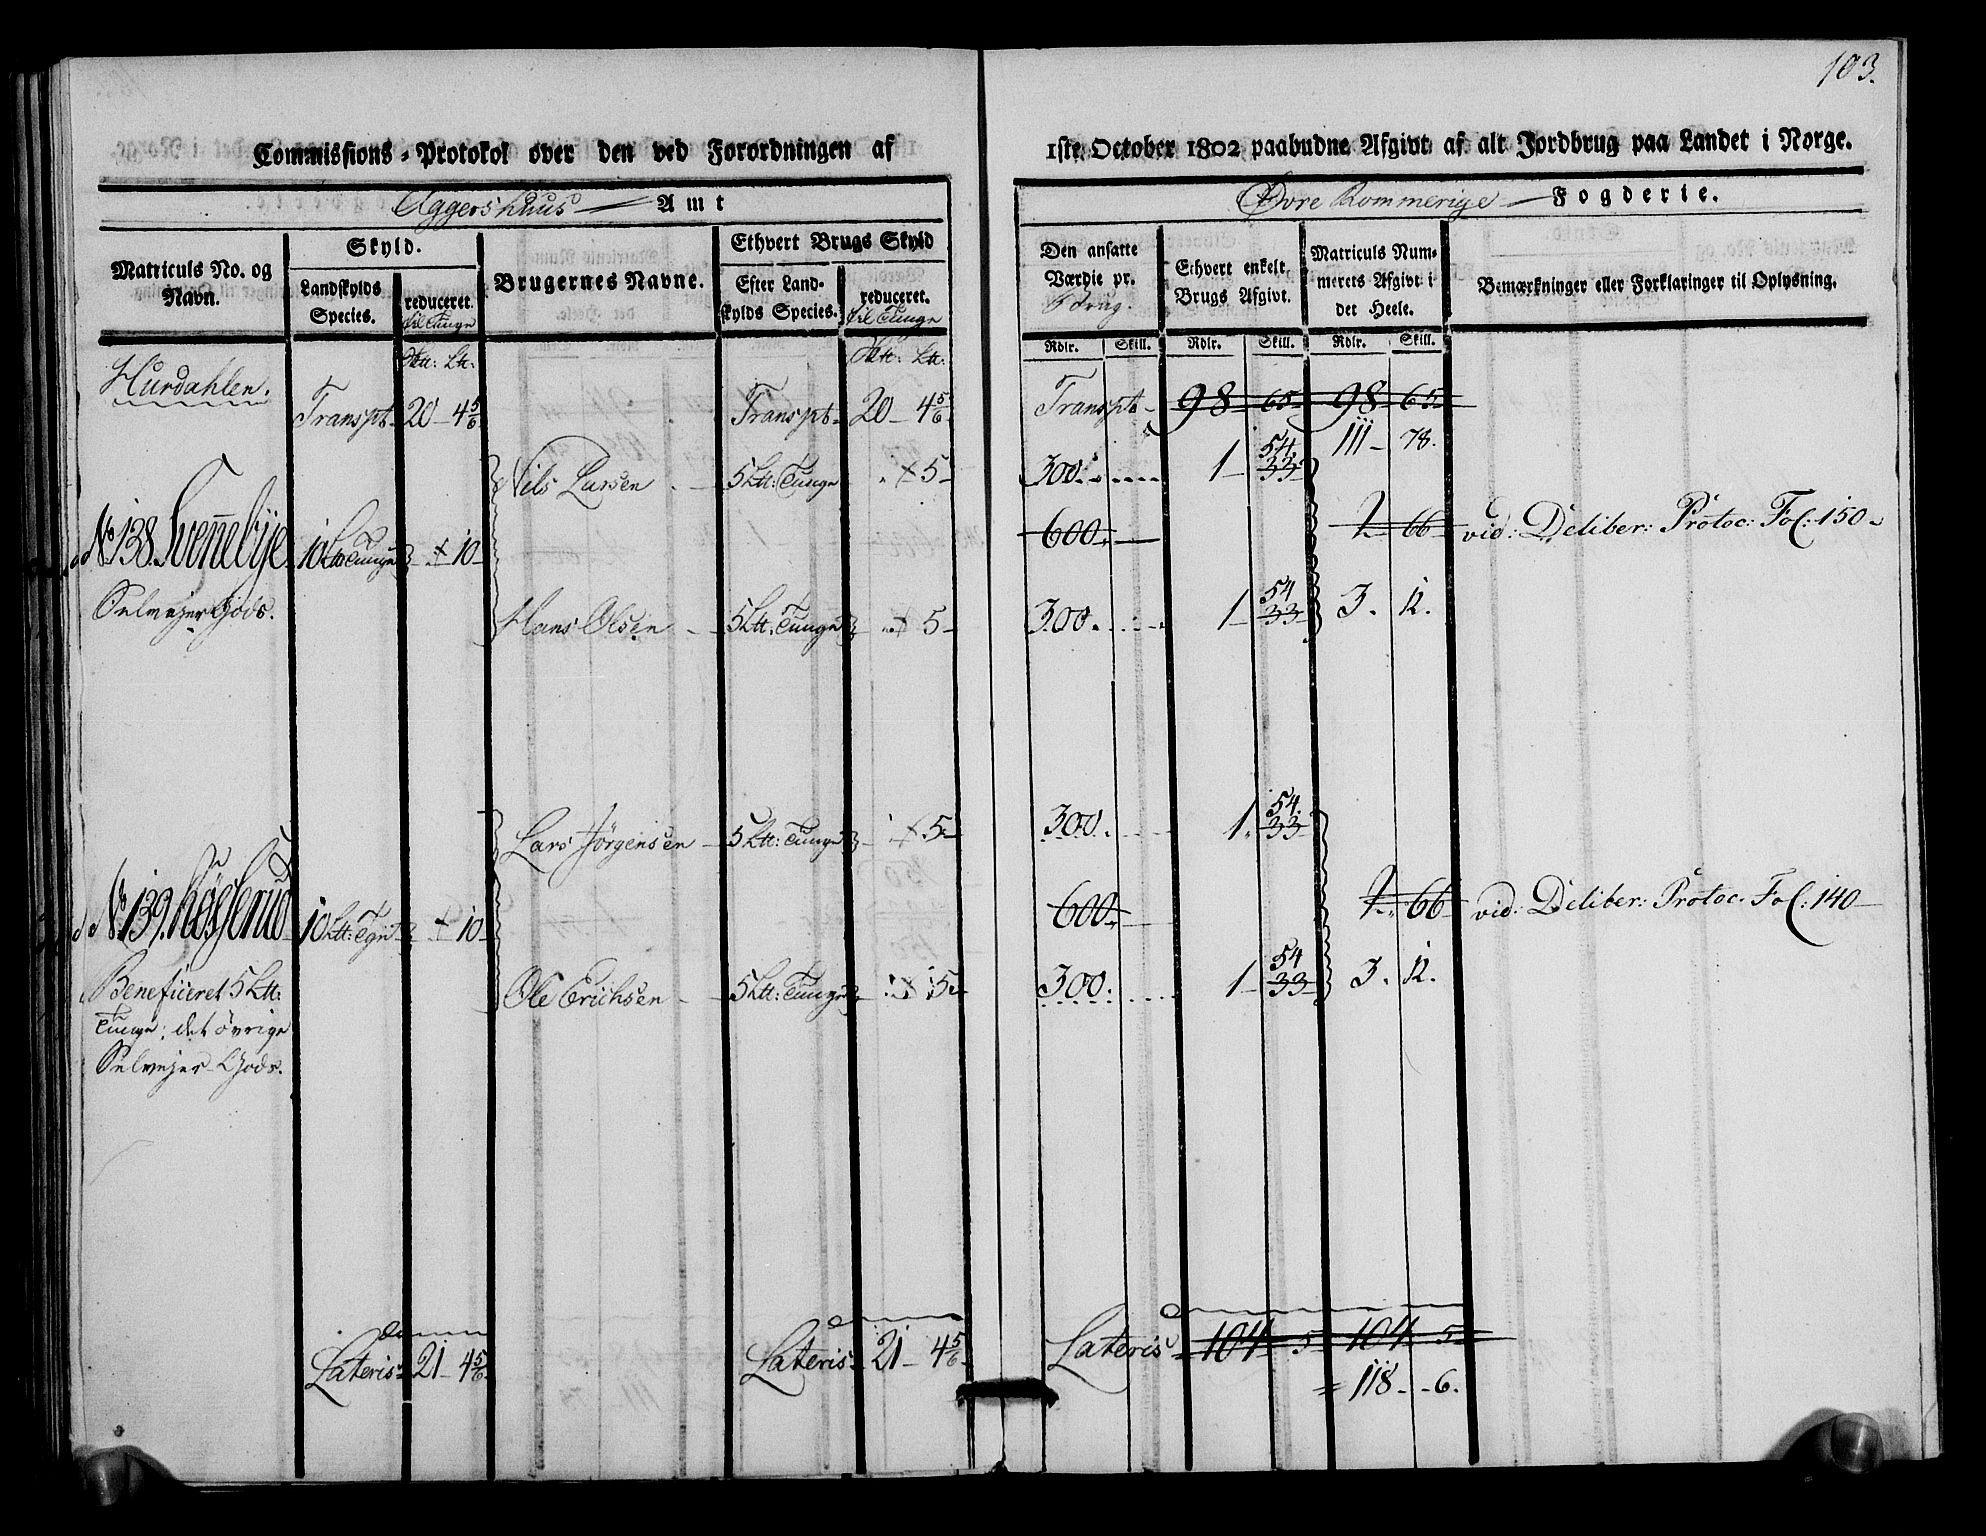 103.
Commissions-Protokol over den ved Forordningen af 1ste October 1802 paabudne Afgivt af alt Jordbrug paa Landet i Norge.
Aggershuus Amt
Øvre Rommerige Fogderie.
Matriculs No. og Navn.
Skyld.
Landskylds Species.
reduceret. til Tunge
Brugernes Navne.
Ethvert Brugs Skyld
Efter Landskylds Species.
reduceret. til Tunge
Den ansatte Værdie pr. Brug.
Ethvert enkelt Brugs Afgivt.
Matriculs Nummerets Afgivt i det Heele.
Bemærkninger eller Forklaringer til Oplysning.
Rdlr. Skill. Rdlr. Skill. Rdlr. Skill.
Hurdahlen.
Transpt. 20 - 4 5/6 Transpt. 20 - 4 5/6 Transpt. 98 - 65 98 - 65
111 - 78.
Nils Larsen 5 Ltt: Tunge + 5 300. 1 - 54. 33
No 138. Svennebÿe 10 Ltt Tunge + 10 600. 2 66 vid: Deliber: Protoc: Fol: 150
Selvejer Gods.
Hans Olsen 5 Ltt: Tunge + 5 300. 1 - 54 33 3. 12.
Lars Jørgensen 5 Ltt: Tunge + 5 300. 1. 54. 33
No 139. Røsserud 10 Ltt: + 10 600. 2 66 vid: Deliber: Protoc. Fol: 140
Beneficeret 5 Ltt: Ole Erichsen 5 Ltt: Tunge + 5 300. 1 - 54 33 3. 12.
Tunge; det øvrige
Selvejer Gods.
Lateris 21 - 4 5/6 Lateris 21 - 4 5/6 Lateris 104 - 5 104 5
118 - 6.